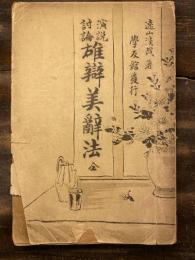 遠山淡哉著
學友館發行
演説
討論
雄辯美辭法
全